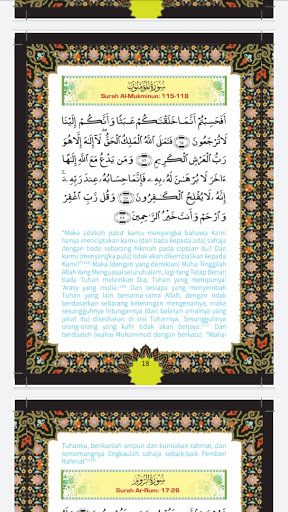 سُورَةُ الْمُؤْمِنُون
Surah Al-Mukminun: 115-118
أَفَحَسِبْتُمْ أَنَّمَا خَلَقْنَاكُمْ عَبَثًا وَأَنَّكُمْ إِلَيْنَا
لَا تُرْجَعُونَ ﴿١١٥﴾ فَتَعَالَى اللَّهُ الْمَلِكُ الْحَقُّ ۖ لَا إِلَٰهَ إِلَّا هُوَ
رَبُّ الْعَرْشِ الْكَرِيمِ ﴿١١٦﴾ وَمَن يَدْعُ مَعَ اللَّهِ إِلَٰهًا
آخَرَ لَا بُرْهَانَ لَهُ بِهِ فَإِنَّمَا حِسَابُهُ عِندَ رَبِّهِ ۚ
إِنَّهُ لَا يُفْلِحُ الْكَافِرُونَ ﴿١١٧﴾ وَقُل رَّبِّ اغْفِرْ
وَارْحَمْ وَأَنتَ خَيْرُ الرَّاحِمِينَ ﴿١١٨﴾
"Maka adakah patut kamu menyangka bahawa Kami
hanya menciptakan kamu (dari tiada kepada ada) sahaja
dengan tiada sebarang hikmah pada ciptaan itu? Dan
kamu (menyangka pula) tidak akan dikembalikan kepada
Kami?" Maka (dengan yang demikian) Maha Tinggilah
Allah Yang Menguasai seluruh alam, lagi Yang Tetap Benar;
tiada Tuhan melainkan Dia, Tuhan yang mempunyai
'Arasy yang mulia. Dan sesiapa yang menyembah
Tuhan yang lain bersama-sama Allah, dengan tidak
berdasarkan sebarang keterangan mengenainya, maka
sesungguhnya hitungannya (dan balasan amalnya yang
jahat itu) disediakan di sisi Tuhannya. Sesungguhnya
orang-orang yang kafir tidak akan berjaya. Dan
berdoalah (wahai Muhammad dengan berkata): "Wahai
18
Tuhanku, berikanlah ampun dan kurniakan rahmat, dan
sememangnya Engkaulah sahaja sebaik-baik Pemberi
Rahmat"
سُورَةُ الرُّوم
Surah Ar-Rum: 17-26